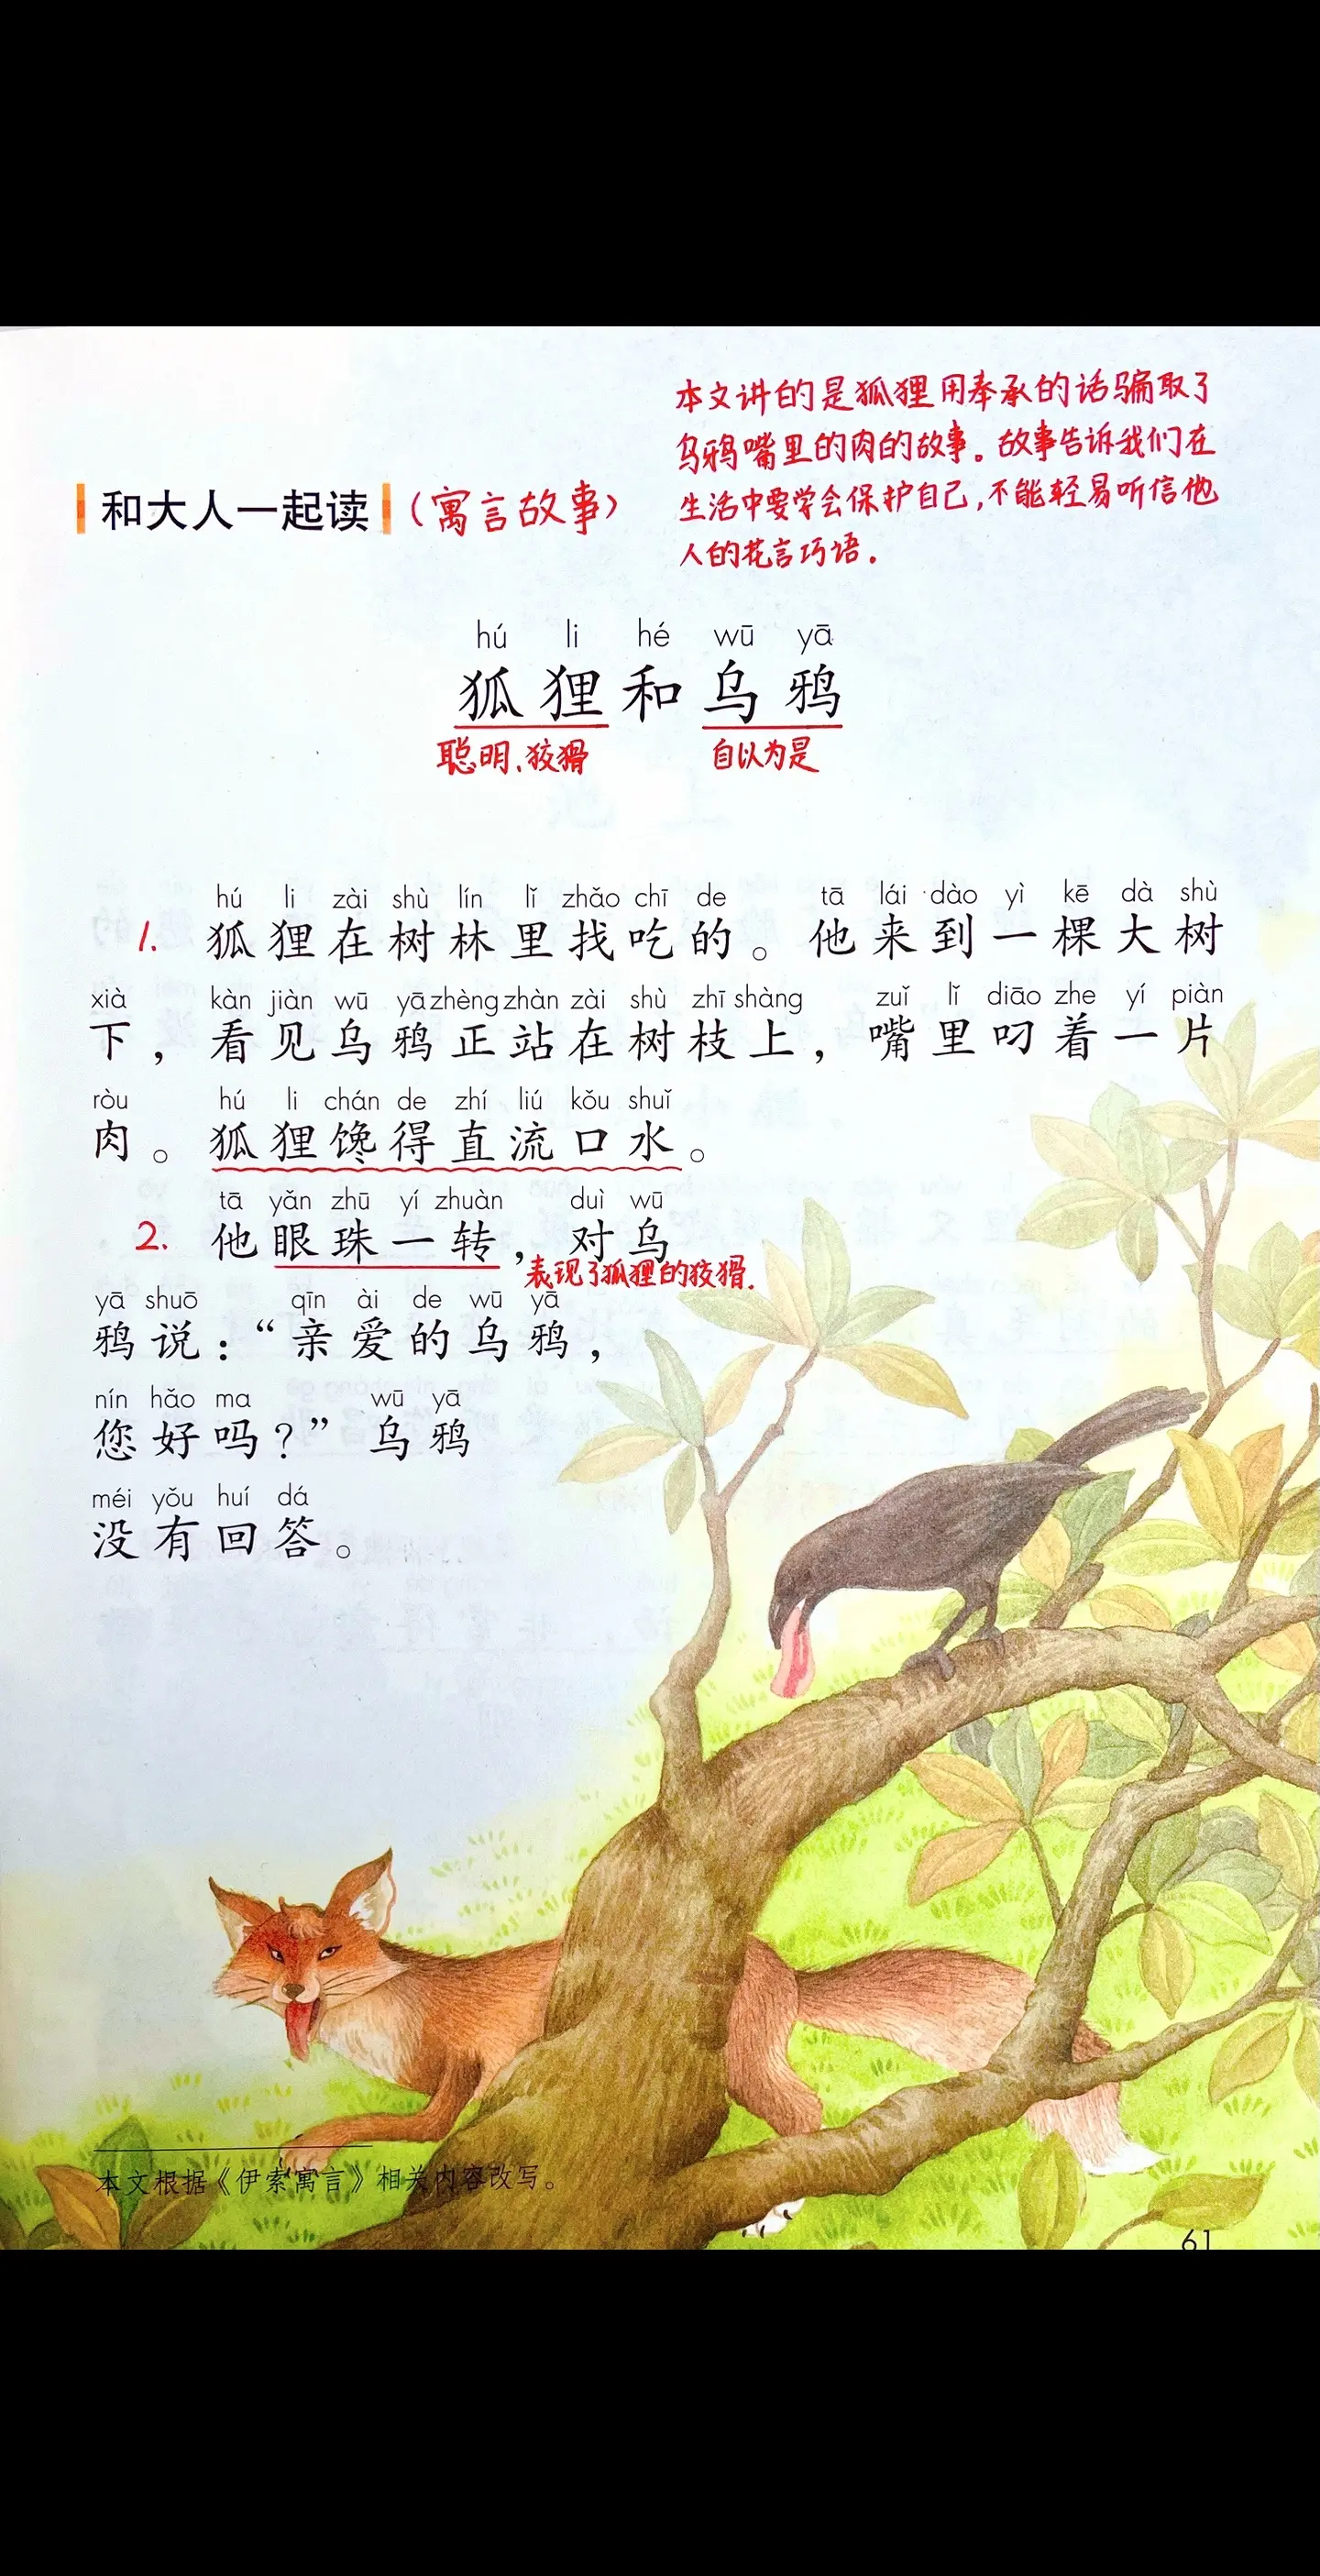 本文讲的是狐狸用奉承的话骗取了
乌鸦嘴里的肉的故事。故事告诉我们在
生活中要学会保护自己,不能轻易听信他
人的花言巧语。
和大人一起读(寓言故事)
hú li hé wū yā
狐狸和乌鸦
聪明、狡猾 自以为是
hú li zài shù lín lǐ zhǎo chī de tā lái dào yì kē dà shù
1. 狐狸在树林里找吃的。他来到一棵大树
xià kàn jiàn wū yā zhèng zhàn zài shù zhī shàng zuǐ lǐ diāo zhe yí piàn
下,看见乌鸦正站在树枝上,嘴里叼着一片
ròu hú li chán de zhí liú kǒu shuǐ
肉。狐狸馋得直流口水。
tā yǎn zhū yí zhuàn duì wū
2. 他眼珠一转,对乌
表现了狐狸的狡猾.
yā shuō qīn ài de wū yā
鸦说:“亲爱的乌鸦,
nín hǎo ma wū yā
您好吗?”乌鸦
méi yǒu huí dá
没有回答。
本文根据《伊索寓言》相关内容改写。
61